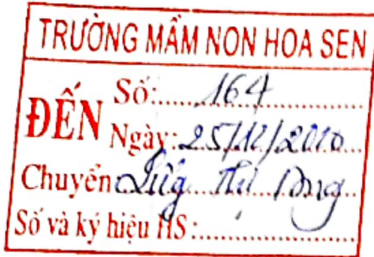 TRƯỜNG MẦM NON HOA SEN
ĐẾN
Số: 164
Ngày: 25/12/2020
Chuyển
Số và ký hiệu HS: